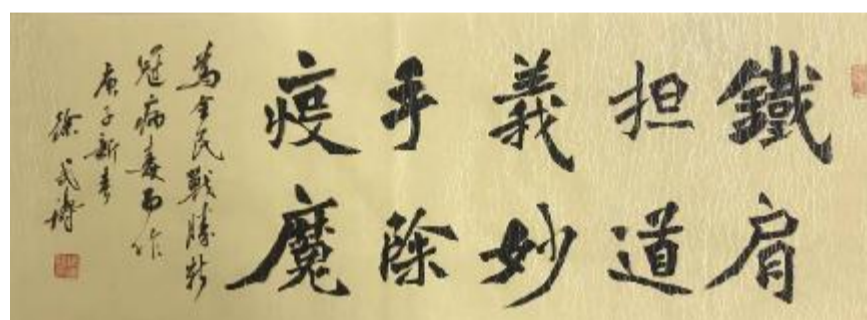 鐵肩
担道
義妙
手除
疫魔
為全民戰勝新
冠病毒而作
庚子新春
徐武博